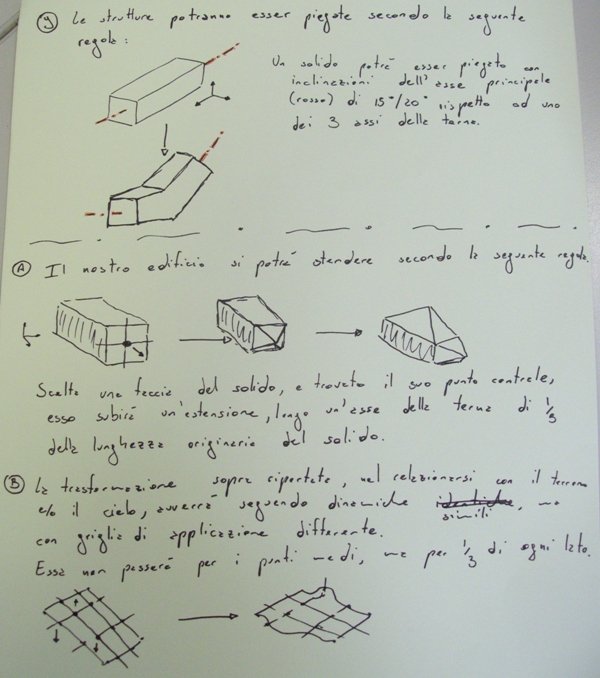 Y Le strutture potranno esser piegate secondo la seguente
regola:
Un solido potrà esser piegato con
inclinazioni dell'asse principale
(rosso) di 15°/20° rispetto ad uno
dei 3 assi della terna.
A Il nostro edificio si potrà stendere secondo la seguente regola.
Scelta una faccia del solido, e trovato il suo punto centrale,
esso subirà un'estensione, lungo un'asse della terna di 1/3
della lunghezza originaria del solido.
B La trasformazione sopra riportata, nel relazionarsi con il terreno
e/o il cielo, avverrà seguendo dinamiche identiche, ma
simili
con griglia di applicazione differente.
Essa non passerà per i punti medi, ma per 1/3 di ogni lato.